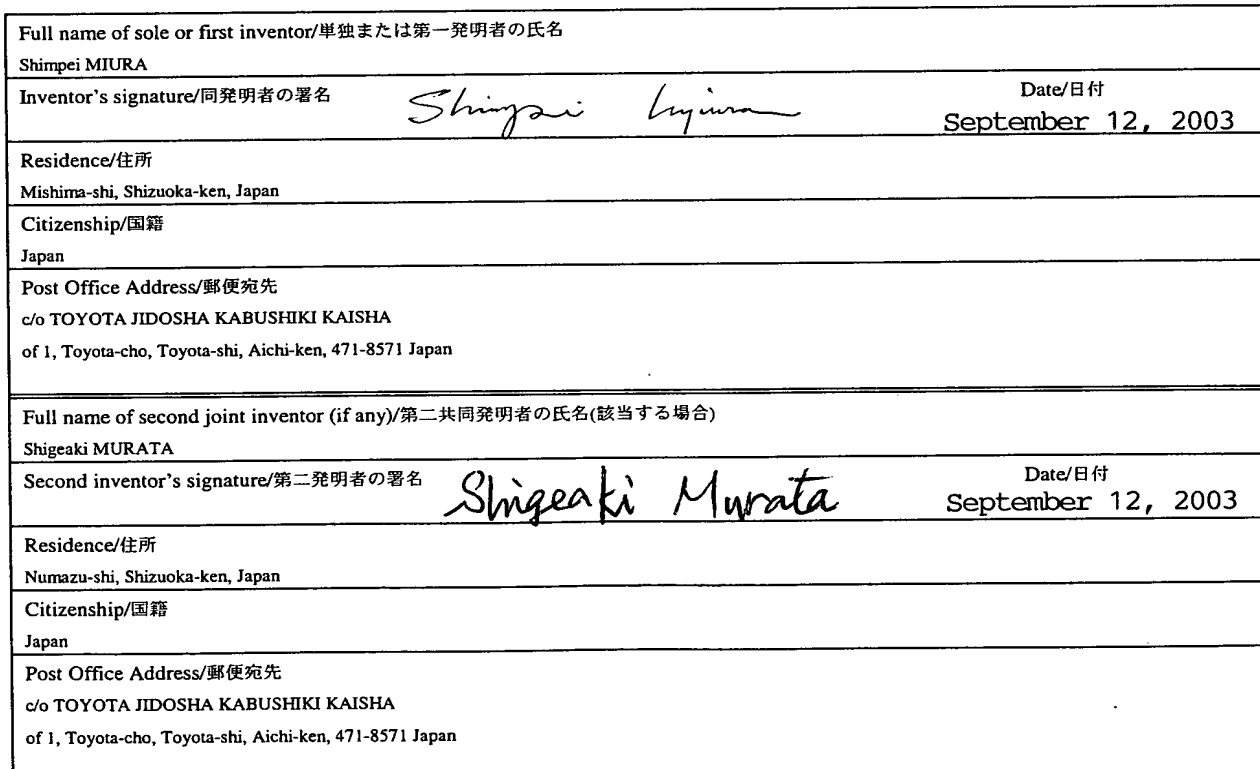 Full name of sole or first inventor/単独または第一発明者の氏名
Shimpei MIURA
Inventor's signature/同発明者の署名 Date/日付
September 12, 2003
Residence/住所
Mishima-shi, Shizuoka-ken, Japan
Citizenship/国籍
Japan
Post Office Address/郵便宛先
c/o TOYOTA JIDOSHA KABUSHIKI KAISHA
of 1, Toyota-cho, Toyota-shi, Aichi-ken, 471-8571 Japan
Full name of second joint inventor (if any)/第二共同発明者の氏名(該当する場合)
Shigeaki MURATA
Second inventor's signature/第二発明者の署名 Shigeaki Murata Date/日付
September 12, 2003
Residence/住所
Numazu-shi, Shizuoka-ken, Japan
Citizenship/国籍
Japan
Post Office Address/郵便宛先
c/o TOYOTA JIDOSHA KABUSHIKI KAISHA
of 1, Toyota-cho, Toyota-shi, Aichi-ken, 471-8571 Japan